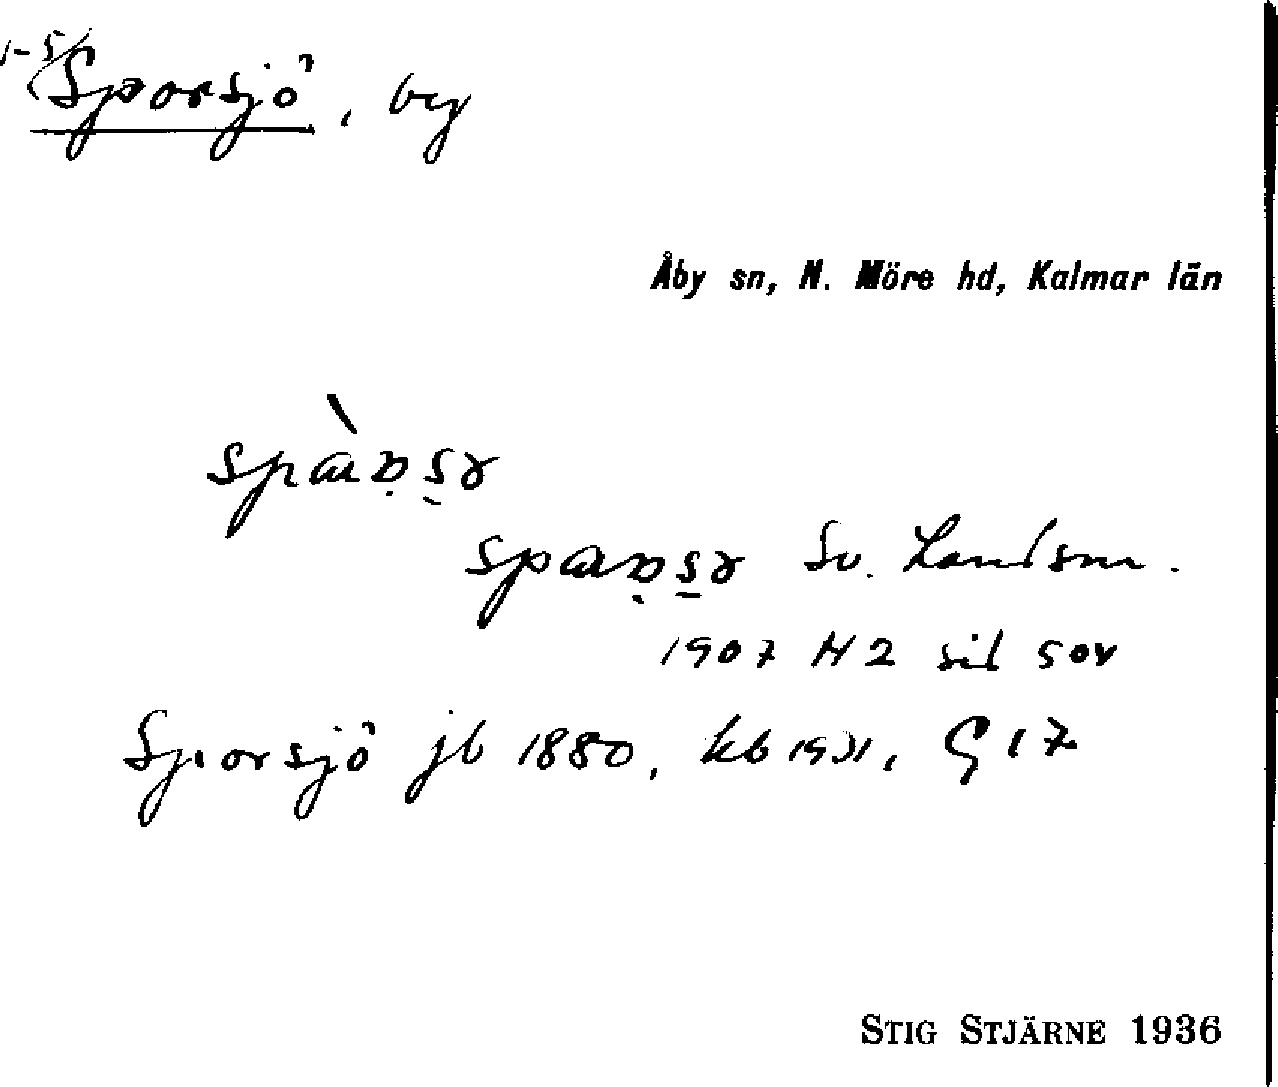 1-5/
Sporsjö, by
Åby sn, N. Möre hd, Kalmar län
Sv. Landsm.
1907 H2 sid
Sporsjö jb 1880, kb 1931, G 17
STIG STJÄRNE 1936